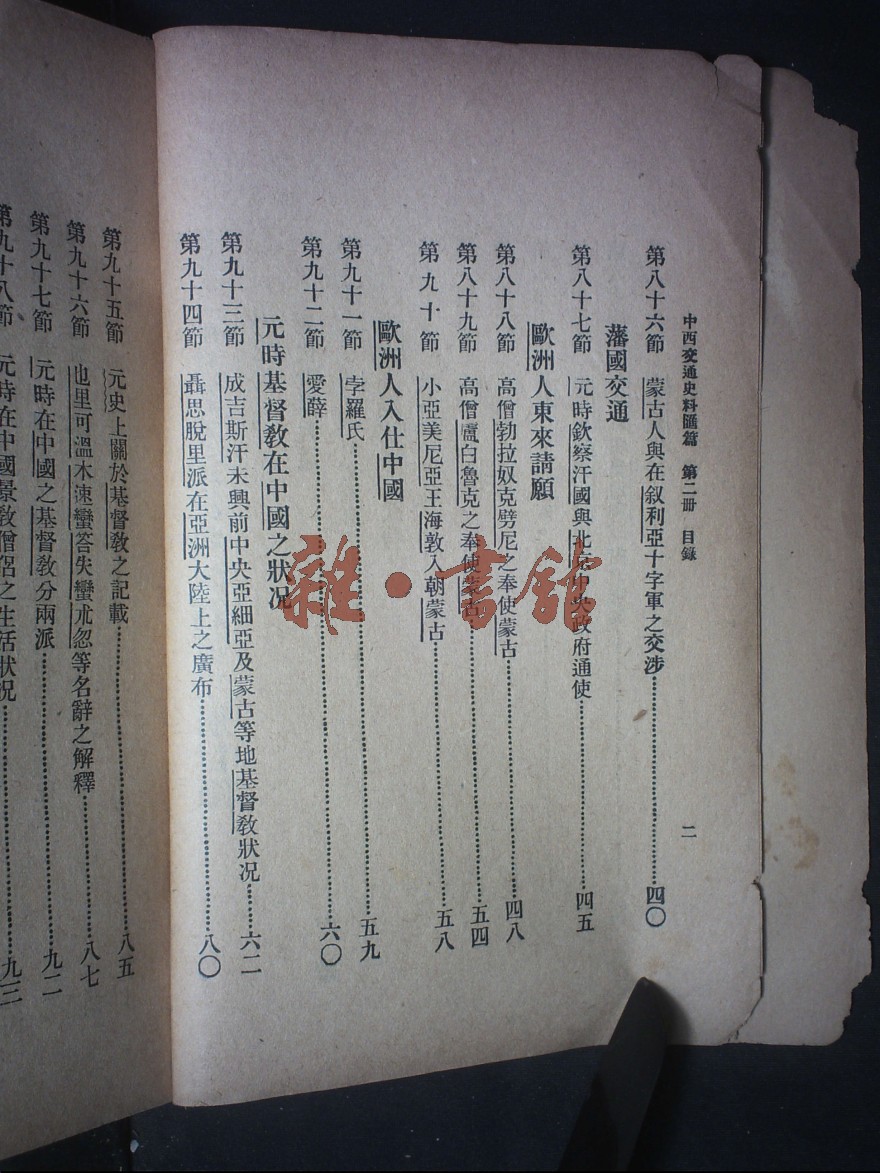 中西交通史料匯篇 第二冊 目錄 二
第八十六節 蒙古人與在叙利亞十字軍之交涉……四〇
藩國交通
第八十七節 元時欽察汗國與北京中央政府通使……四五
歐洲人東來請願
第八十八節 高僧勃拉奴克劈尼之奉使蒙古……四八
第八十九節 高僧盧白魯克之奉使蒙古……五四
第九十節 小亞美尼亞王海敦入朝蒙古……五八
歐洲人入仕中國
第九十一節 孛羅氏……五九
第九十二節 愛薛……六〇
元時基督教在中國之狀況
第九十三節 成吉斯汗未興前中央亞細亞及蒙古等地基督教狀況……六二
第九十四節 聶思脫里派在亞洲大陸上之廣布……八〇
第九十五節 元史上關於基督教之記載……八五
第九十六節 也里可溫木速蠻答失蠻朮忽等名辭之解釋……八七
第九十七節 元時在中國之基督教分兩派……九二
第九十八節 元時在中國景教僧侶之生活狀況……九三
雜·書館